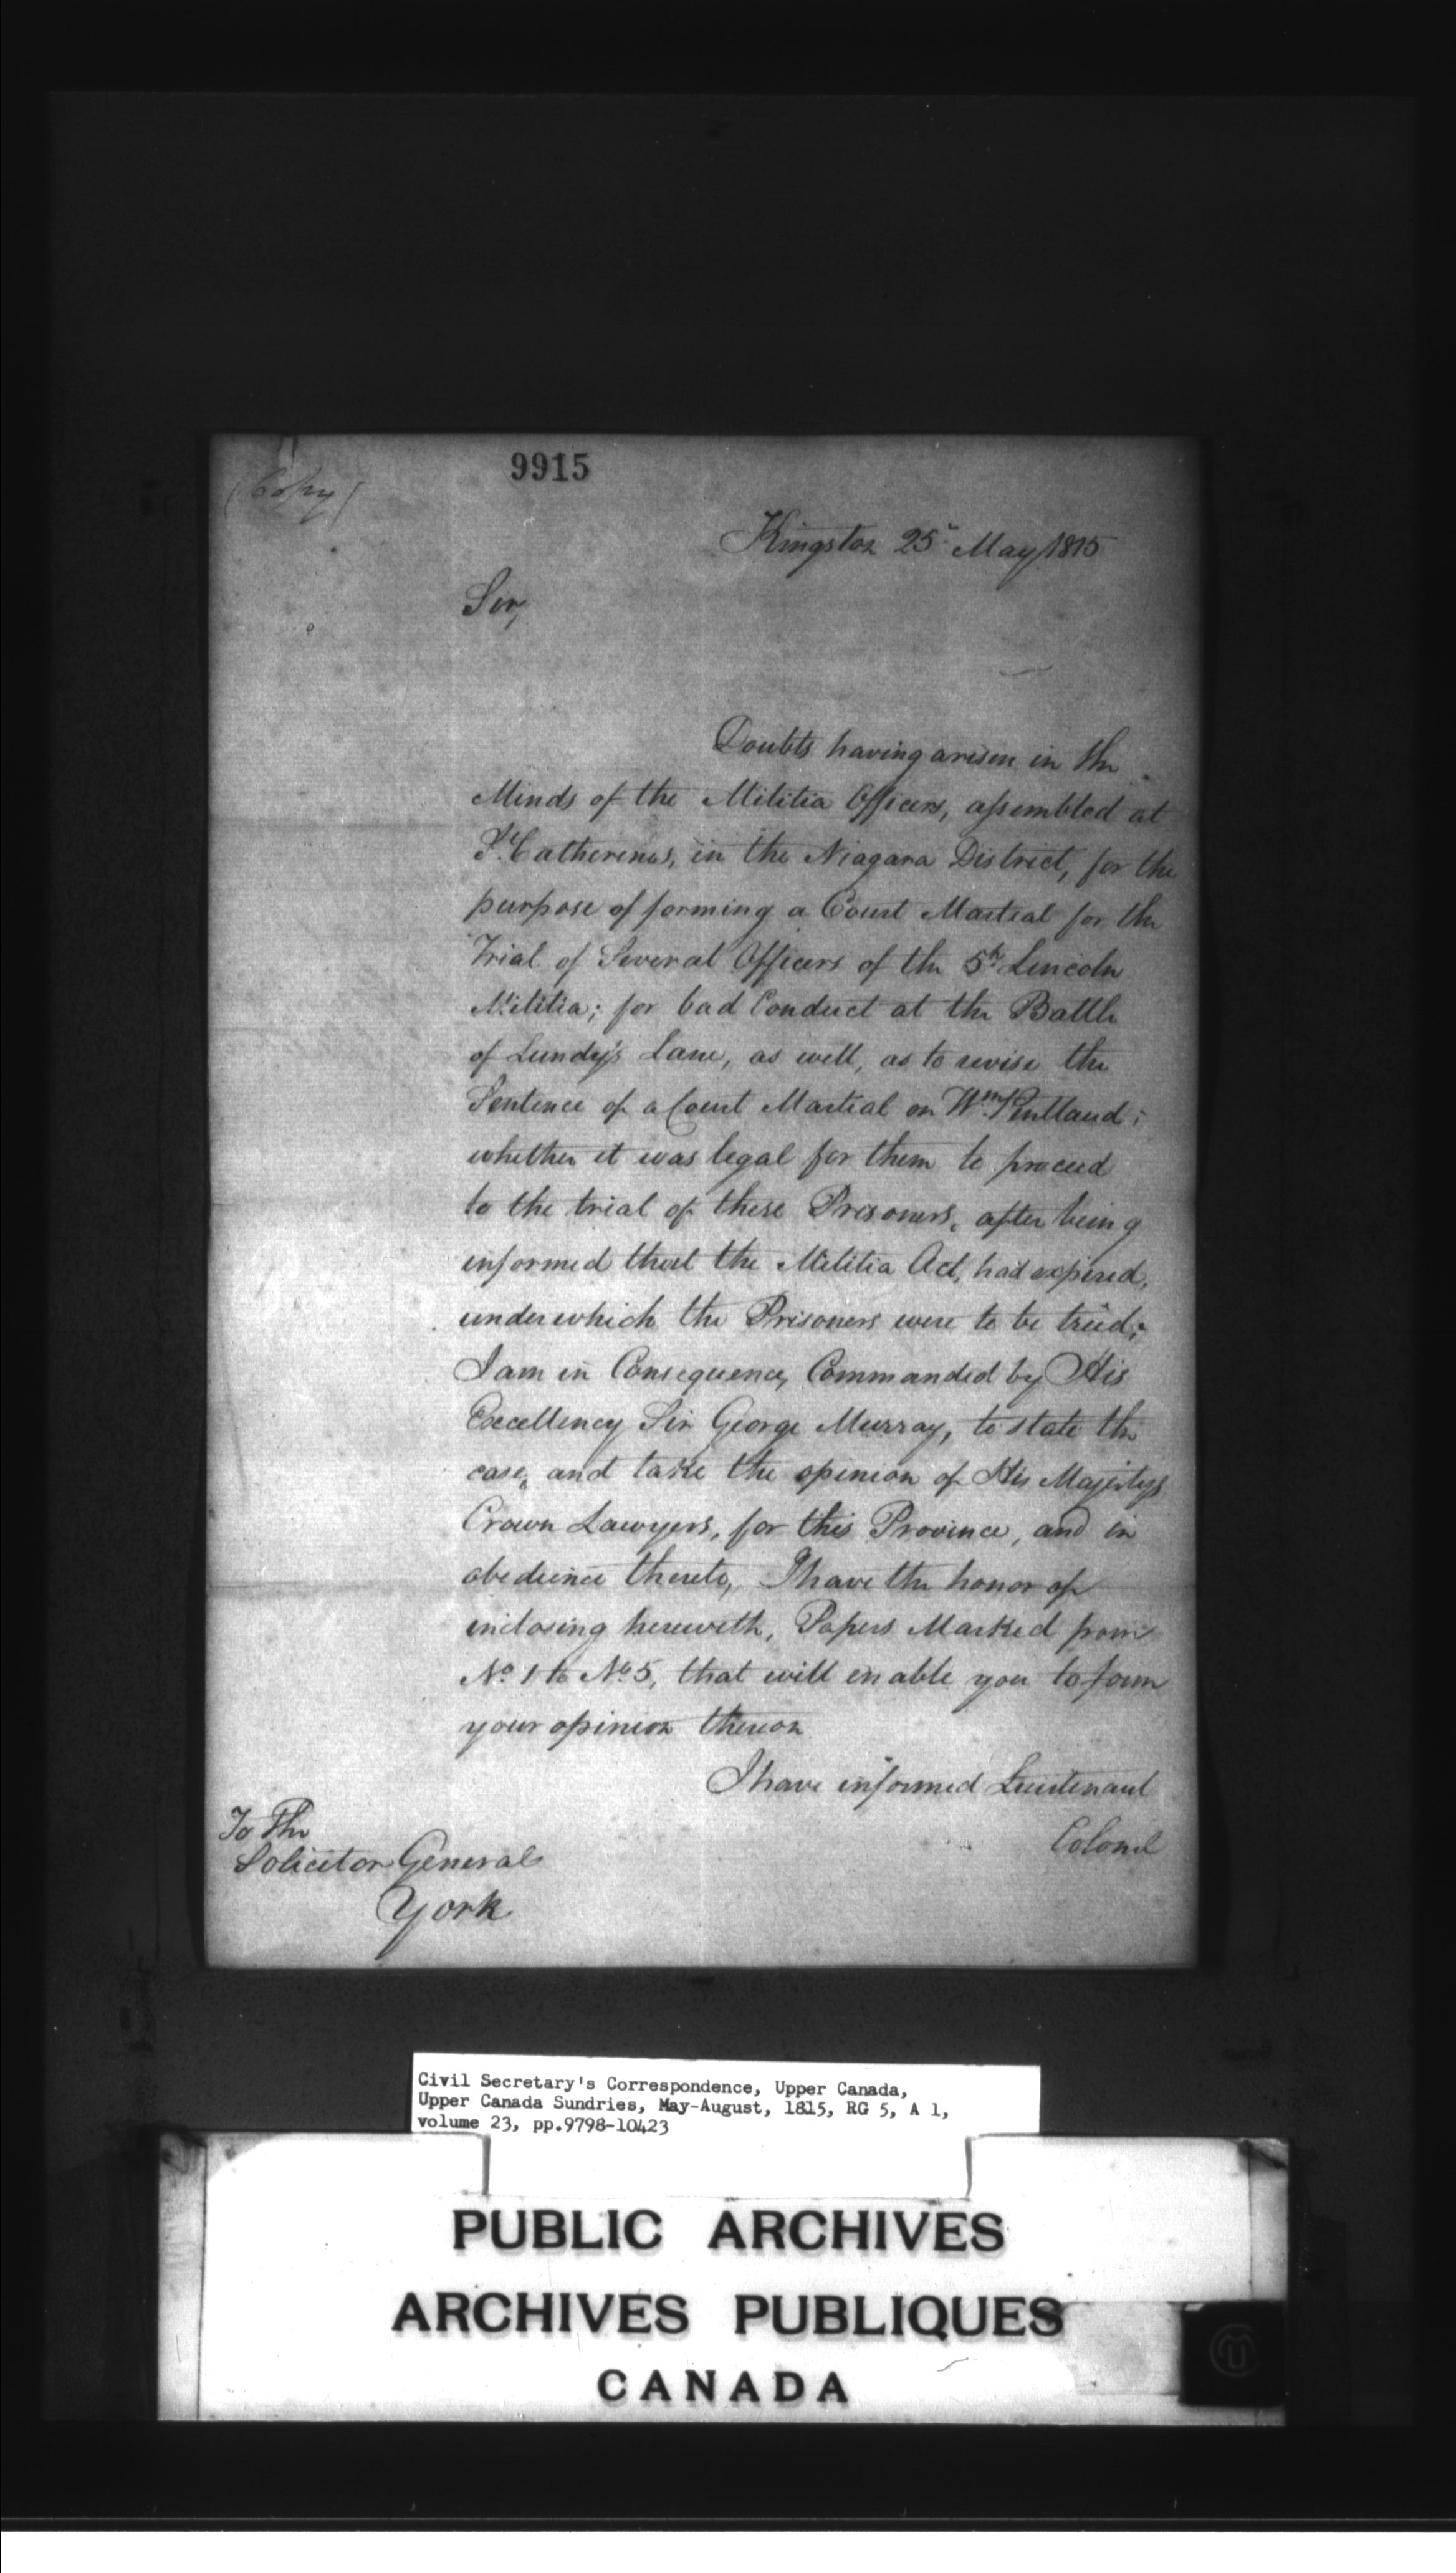 9915
(Copy)
Kingston 25th May 1815
Sir,
Doubts having arisen in the
Minds of the Militia Officers, assembled at
St. Catherines, in the Niagara District, for the
purpose of forming a Court Martial for the
Trial of Several Officers of the 5th Lincoln
Militia; for bad Conduct at the Battle
of Lundy's Lane, as well, as to revise the
Sentence of a Court Martial on Wm Pentland;
whether it was legal for them to proceed
to the trial of these Prisoners, after being
informed that the Militia Act, had expired,
under which the Prisoners were to be tried;
I am in Consequence, Commanded by His
Excellency Sir George Murray, to state the
case, and take the opinion of His Majestys
Crown Lawyers, for this Province, and in
obedience thereto, I have the honor of
inclosing herewith, Papers Marked from
No. 1 to No. 5, that will enable you to form
your opinion thereon
I have informed Lieutenant
Colonel
To The
Solicitor General
York
Civil Secretary's Correspondence, Upper Canada,
Upper Canada Sundries, May-August, 1815, RG 5, A 1,
volume 23, pp.9798-10423
PUBLIC ARCHIVES
ARCHIVES PUBLIQUES
CANADA